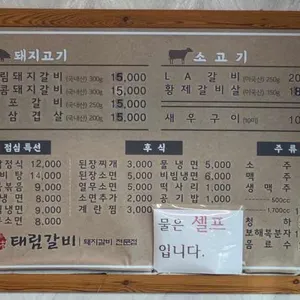 돼지고기
소고기
림돼지갈비 (국내산) 300g 15,000
콤돼지갈비 (국내산) 300g 15,000
포갈비 (국내산) 250g 15,000
삼겹살 (국내산) 200g 15,000
LA갈비 (미국산) 250g
황제갈비살 (미국산) 150g
새우구이
점심특선
후식
주류
정식 12,000
비탕 14,000
볶음 8,000
냉면 9,000
8,000
된장찌개 3,000
된장소면 5,000
열무소면 5,000
소면추가 2,000
계란찜 3,000
물냉면 5,000
비빔냉면 6,000
떡사리 1,000
공기밥 1,000
소주
맥주
생맥주
500cc
1,700cc
청하
보해복분자
음료수
물은 셀프
입니다.
태림갈비 돼지갈비 전문점